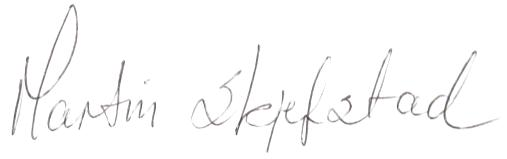 Martin Skjefstad